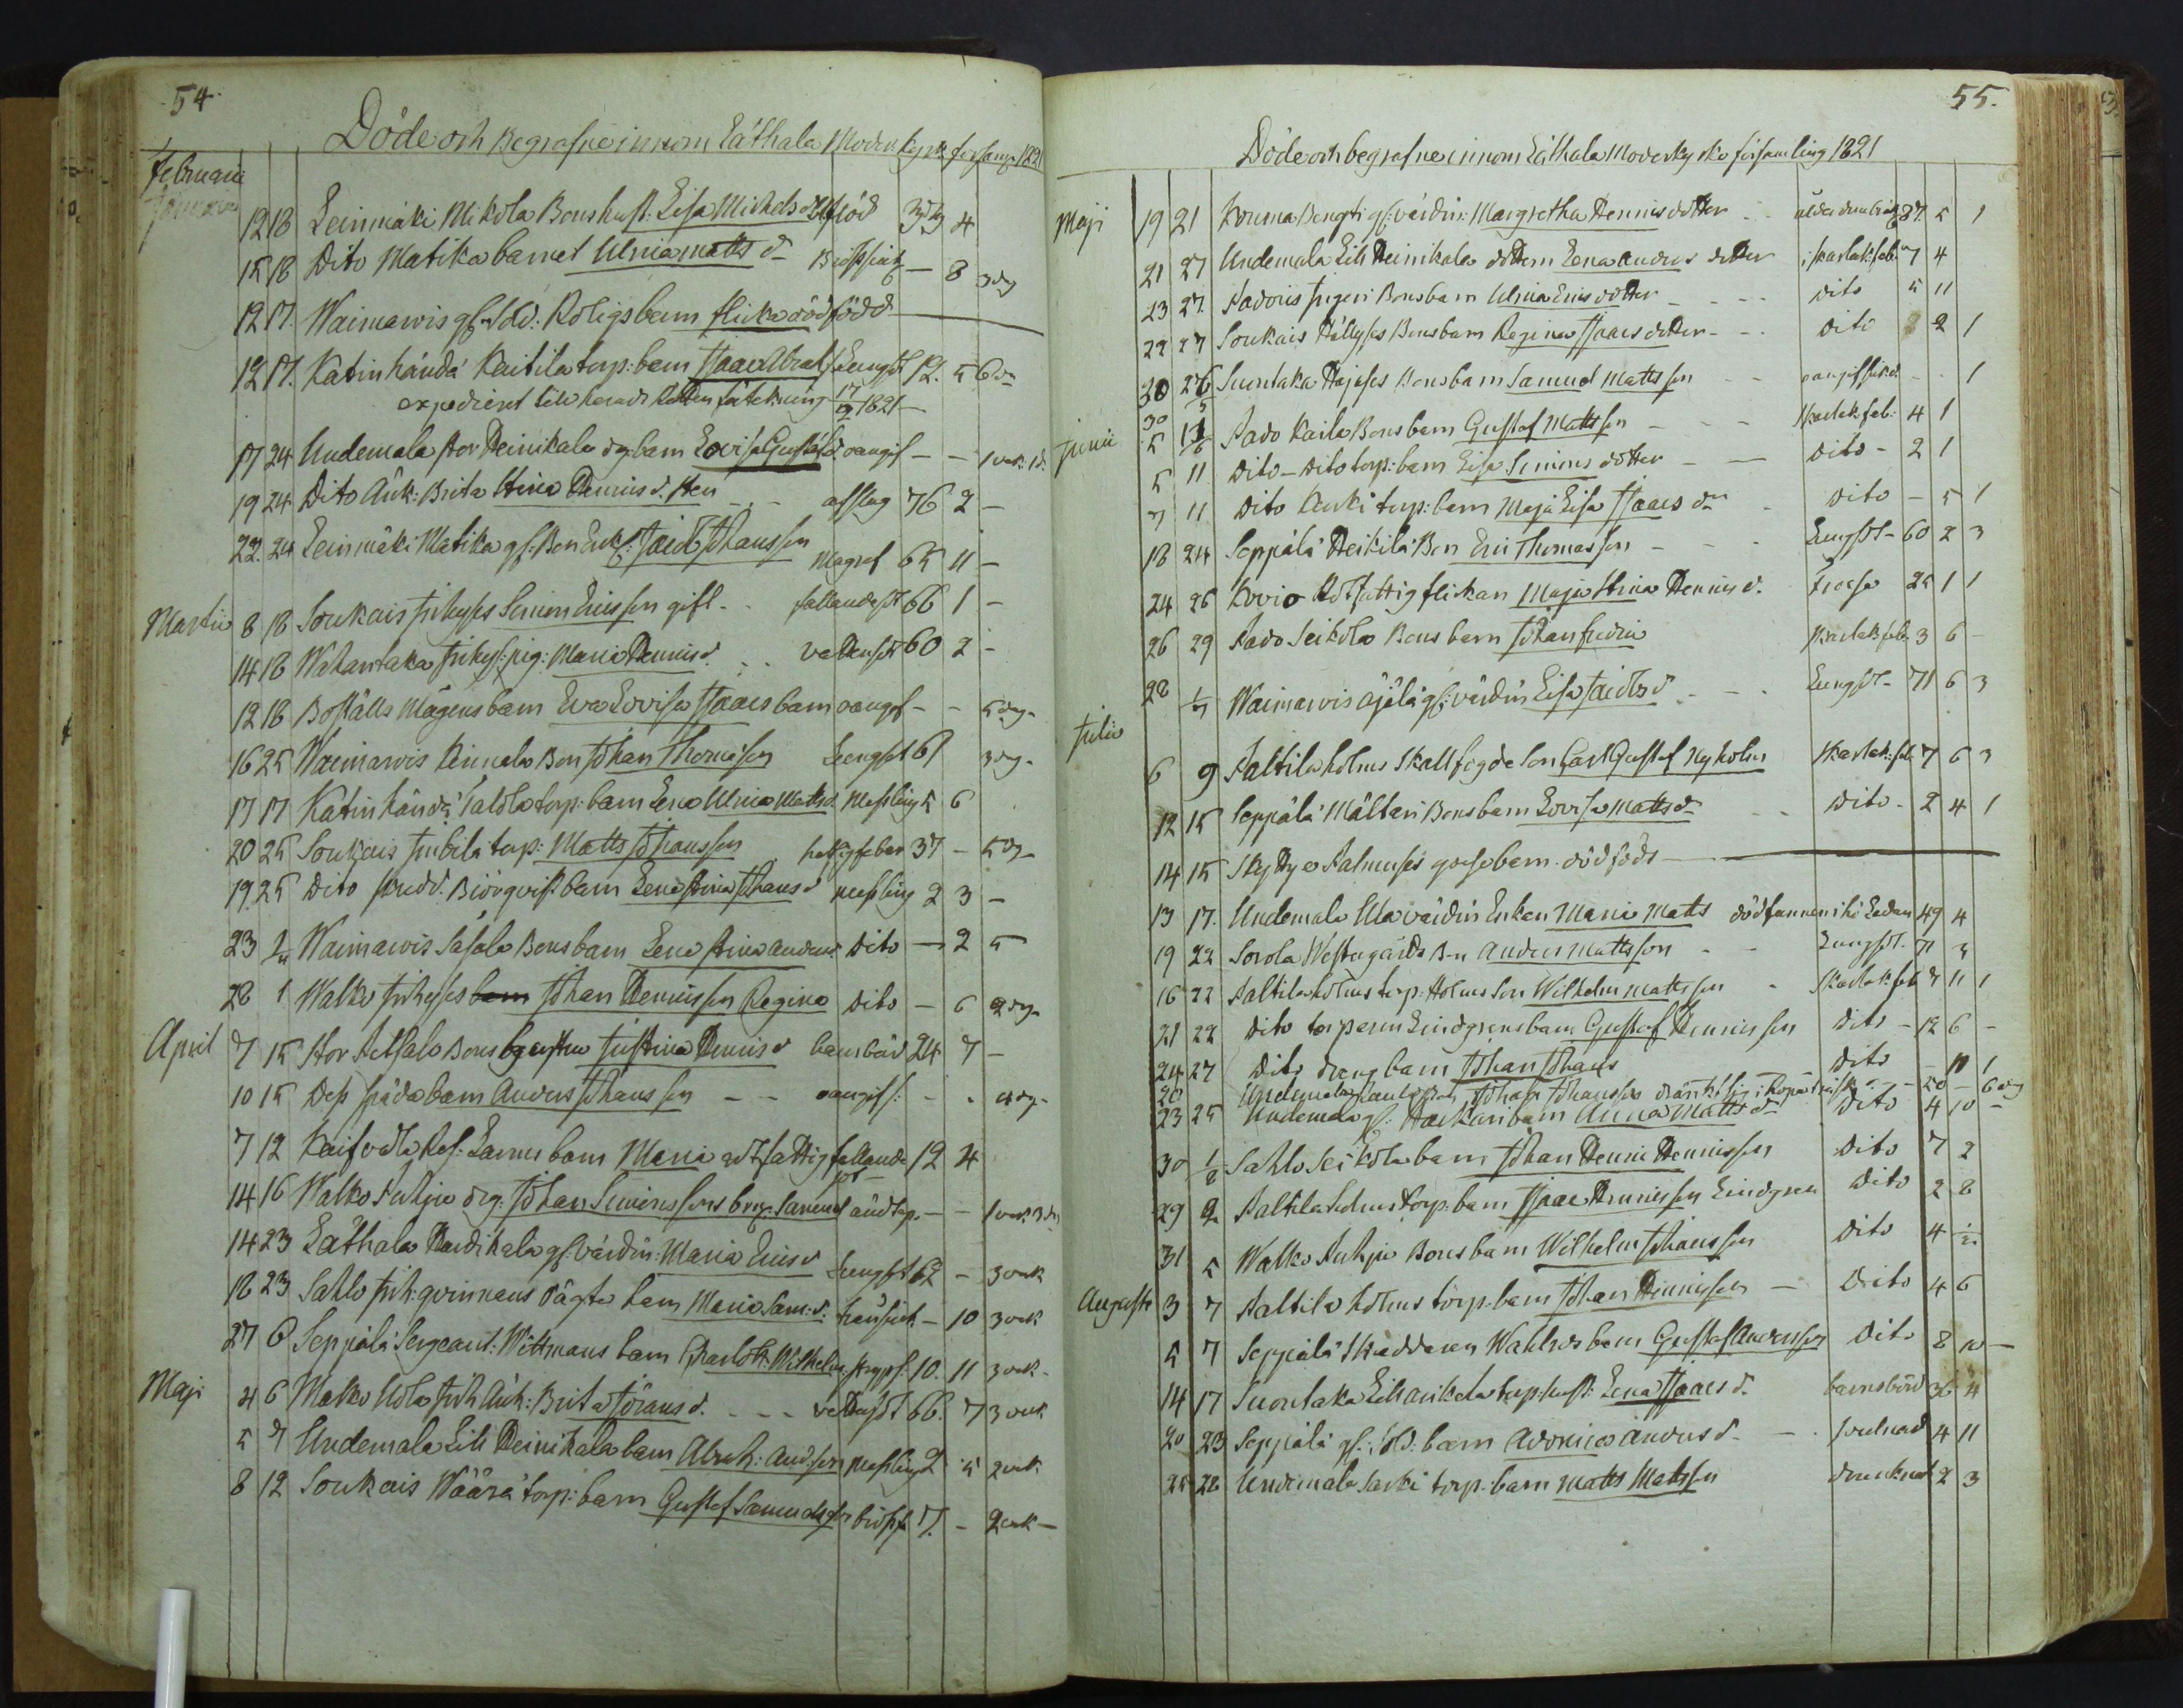 54.
Döde och Begrafne innom Låthala Moderkyrk församl. 1821
Februarii
Januarii
12 18 Leinmäki Mikola Bons hust: Lisa Michels dotter flöd 33 4
15 18 Dito Matika barnet Ulrica Matts d:r Bröstsiuk - 8 3 dg
12 17. Waimaris gl. Sold: Roligs barn flicka dödfödd
12 17. Katinhändä Kaitila torp: barn Isaac Abrah: Lungsot 12. 5 6 v.
expedieret till härads Rätten förtekning 17/9 1821
17 24 Undemala stor Heinikala dg barn Lovisa Gustafs d. oangif - - 1 vek: 1 d.
19 24 Dito Änk: Brita Stina Henrics d. sten - - afslag 76 2 -
22. 24 Leinmäki Matika gl. Bon Enkl: Jacob Johansson Magref 65 11 -
Martii 8 18 Soukais Inhyses Simon Ericsson gift - fallandesot 66 1 -
14 18 Wahantaka Inhys: pig: Maria Henrics d. - - vattusot 60 2 -
12 18 Boställs Mågens barn Eva Lovisa Isaacs barn oangif - - 5 dg.
16 25 Waimaris Keinala Bon Johan Thomasson Lungsot 61 3 dg.
17 17 Katinhändä Talola torp: barn Lena Ulrica Matts d. Messling 5 6
20 25 Soukais Juibila torp: Matts Johansson hetsigfeber 37 - 5 dg
19 25 Dito sold. Biörqvist barn Lena Stina Johans d messling 2 3 -
23 1/4 Waimaris Sasala Bons barn Lena Stina Anders Dito - 2 5
28 1 Walko Inhyses Johan Henricsson Regina Dito - 6 2 dg.
April 7 15 Stor Ketsalo Bons hustru Justina Henrics d barnsbörd 24 7 -
10 15 Dess späda barn Anders Johansson - - oangif: - - 4 dg.
7 12 Kaifvola Ref: Larms barn Maria rotfattig fallande sot 12 4
14 16 Walko Juhju drg: Johan Simonssons brn: Samuel andtep. - - 1 vek 3 dg
14 23 Låthala Hardikala gl. värdin: Maria Erics d Lungsot 62 - 3 vek
18 23 Sahlo Inh: qvinnans oägta barn Maria Sam: d: bröstsiuk - 10 3 vek
27 6 Seppälä Sergeant: Wittmans barn Charlott: Wilhelm: krypsl. 10. 11 3 vek.
Maji 4 6 Mälko Uola Inh. Änk: Brita Jörans d. - - - vattusot 66. 7 3 vek
5 7 Undemala Lill Heinikala barn Abrah: And:son Messling 2 5 2 vek
8 12 Soukais Wäärä torp: barn Gustaf Samuelsson bröst. 7. - 2 vek -
55.
Döde och begrafne innom Låthala Moderkyrko församling 1821
Maji 19 21 Kouma Bengti gl: värdin: Margretha Henrics dotter - - ålderdombräck 87. 5 1
21 27 Undemala Lill Heinikala dottern Lena Anders dotter i skarlak:feb. 7 4
23 27. Sadoris Ingeri Bons barn Ulrica Erics dotter - - - - Dito 5 11
22 27 Soukais Hällyses Bons barn Regina Isaacs dotter - - - Dito 2 1
30 26 Suontaka Hajases Bons barn Samuel Mattsson - - oangif siukd. - - 1
Junii 5 11 Sado Kaila Bons barn Gustaf Mattsson - - - Skarlak:feb: 4 1
5 11 Dito - Dito torp: barn Lisa Simons dotter - - Dito - 2 1
7 11 Dito Kerki torp: barn Maja Lisa Isaacs d:r - Dito - 5 1
18 24 Seppälä Heikilä Bon Eric Thomasson - - - Lungsot - 60 2 3
24 26 Kovio Rotfattig flickan Maja Stina Henrics d. Frossa 25 1 1
26 29 Sado Seikola Bons barn Johan Fredric Skarlak feb. 3 6 -
28 1/7 Waimaris Ajälä gl: värdin Lisa Jacobs d. - - - Lungsot - 71 6 3
Julii
6 9 Saltila holms Skallfogde Son Carl Gustaf Nyholm Skarlak:feb. 7 6 3
12 15 Seppälä Mältäri Bons barn Lovisa Matts d:r - - Dito - 2 4 1
14 15 Skyttyes Salmuses gosse barn. död föds
13 17. Undemala Ula värdin Enkan Maria Matts död funnen i hö Ladan 49 4
19 22 Sorola Westergårds B-n Anders Mattsson - - Lungsot. 71 3
16 22 Saltila holms torp: Holms Son Wilhelm Mattsson - Skarlak:feb 7 11 1
21 22 Dito torparen Lindgrens barn Gustaf Henricsson Dito - 12 6 -
24 27 Dito dreng barn Johan Johans Dito - 10 1
20 Undemala Johan Johansson - - - 20 - 6 dg
23 25 Undemala gl: Harkari barn Anna Matts d:r Dito 4 10 -
30 1/8 Sahlo Seikola barn Johan Henric Henricsson Dito 7 2
29 2 Saltila holms torp: barn Isaac Henricsson Lindgren Dito 2 8
31 5 Walko Juhju Bons barn Wilhelm Johansson Dito 4 -
Augusti 3 7 Saltila holms torp: barn Johan Henricsson - Dito 4 6
5 7 Seppälä Skräddaren Wahlros barn Gustaf Andersson Dito 8 10 -
14 17 Suontaka Lill Anikala torp: hust: Lena Isaacs d. barnsbörd 36 4
20 23 Seppälä gl: sold: barn Avorica Anders d. - - svullnad 4 11
25 28 Undemala Sarki torp: barn Matts Mattsson drunknat 2 3